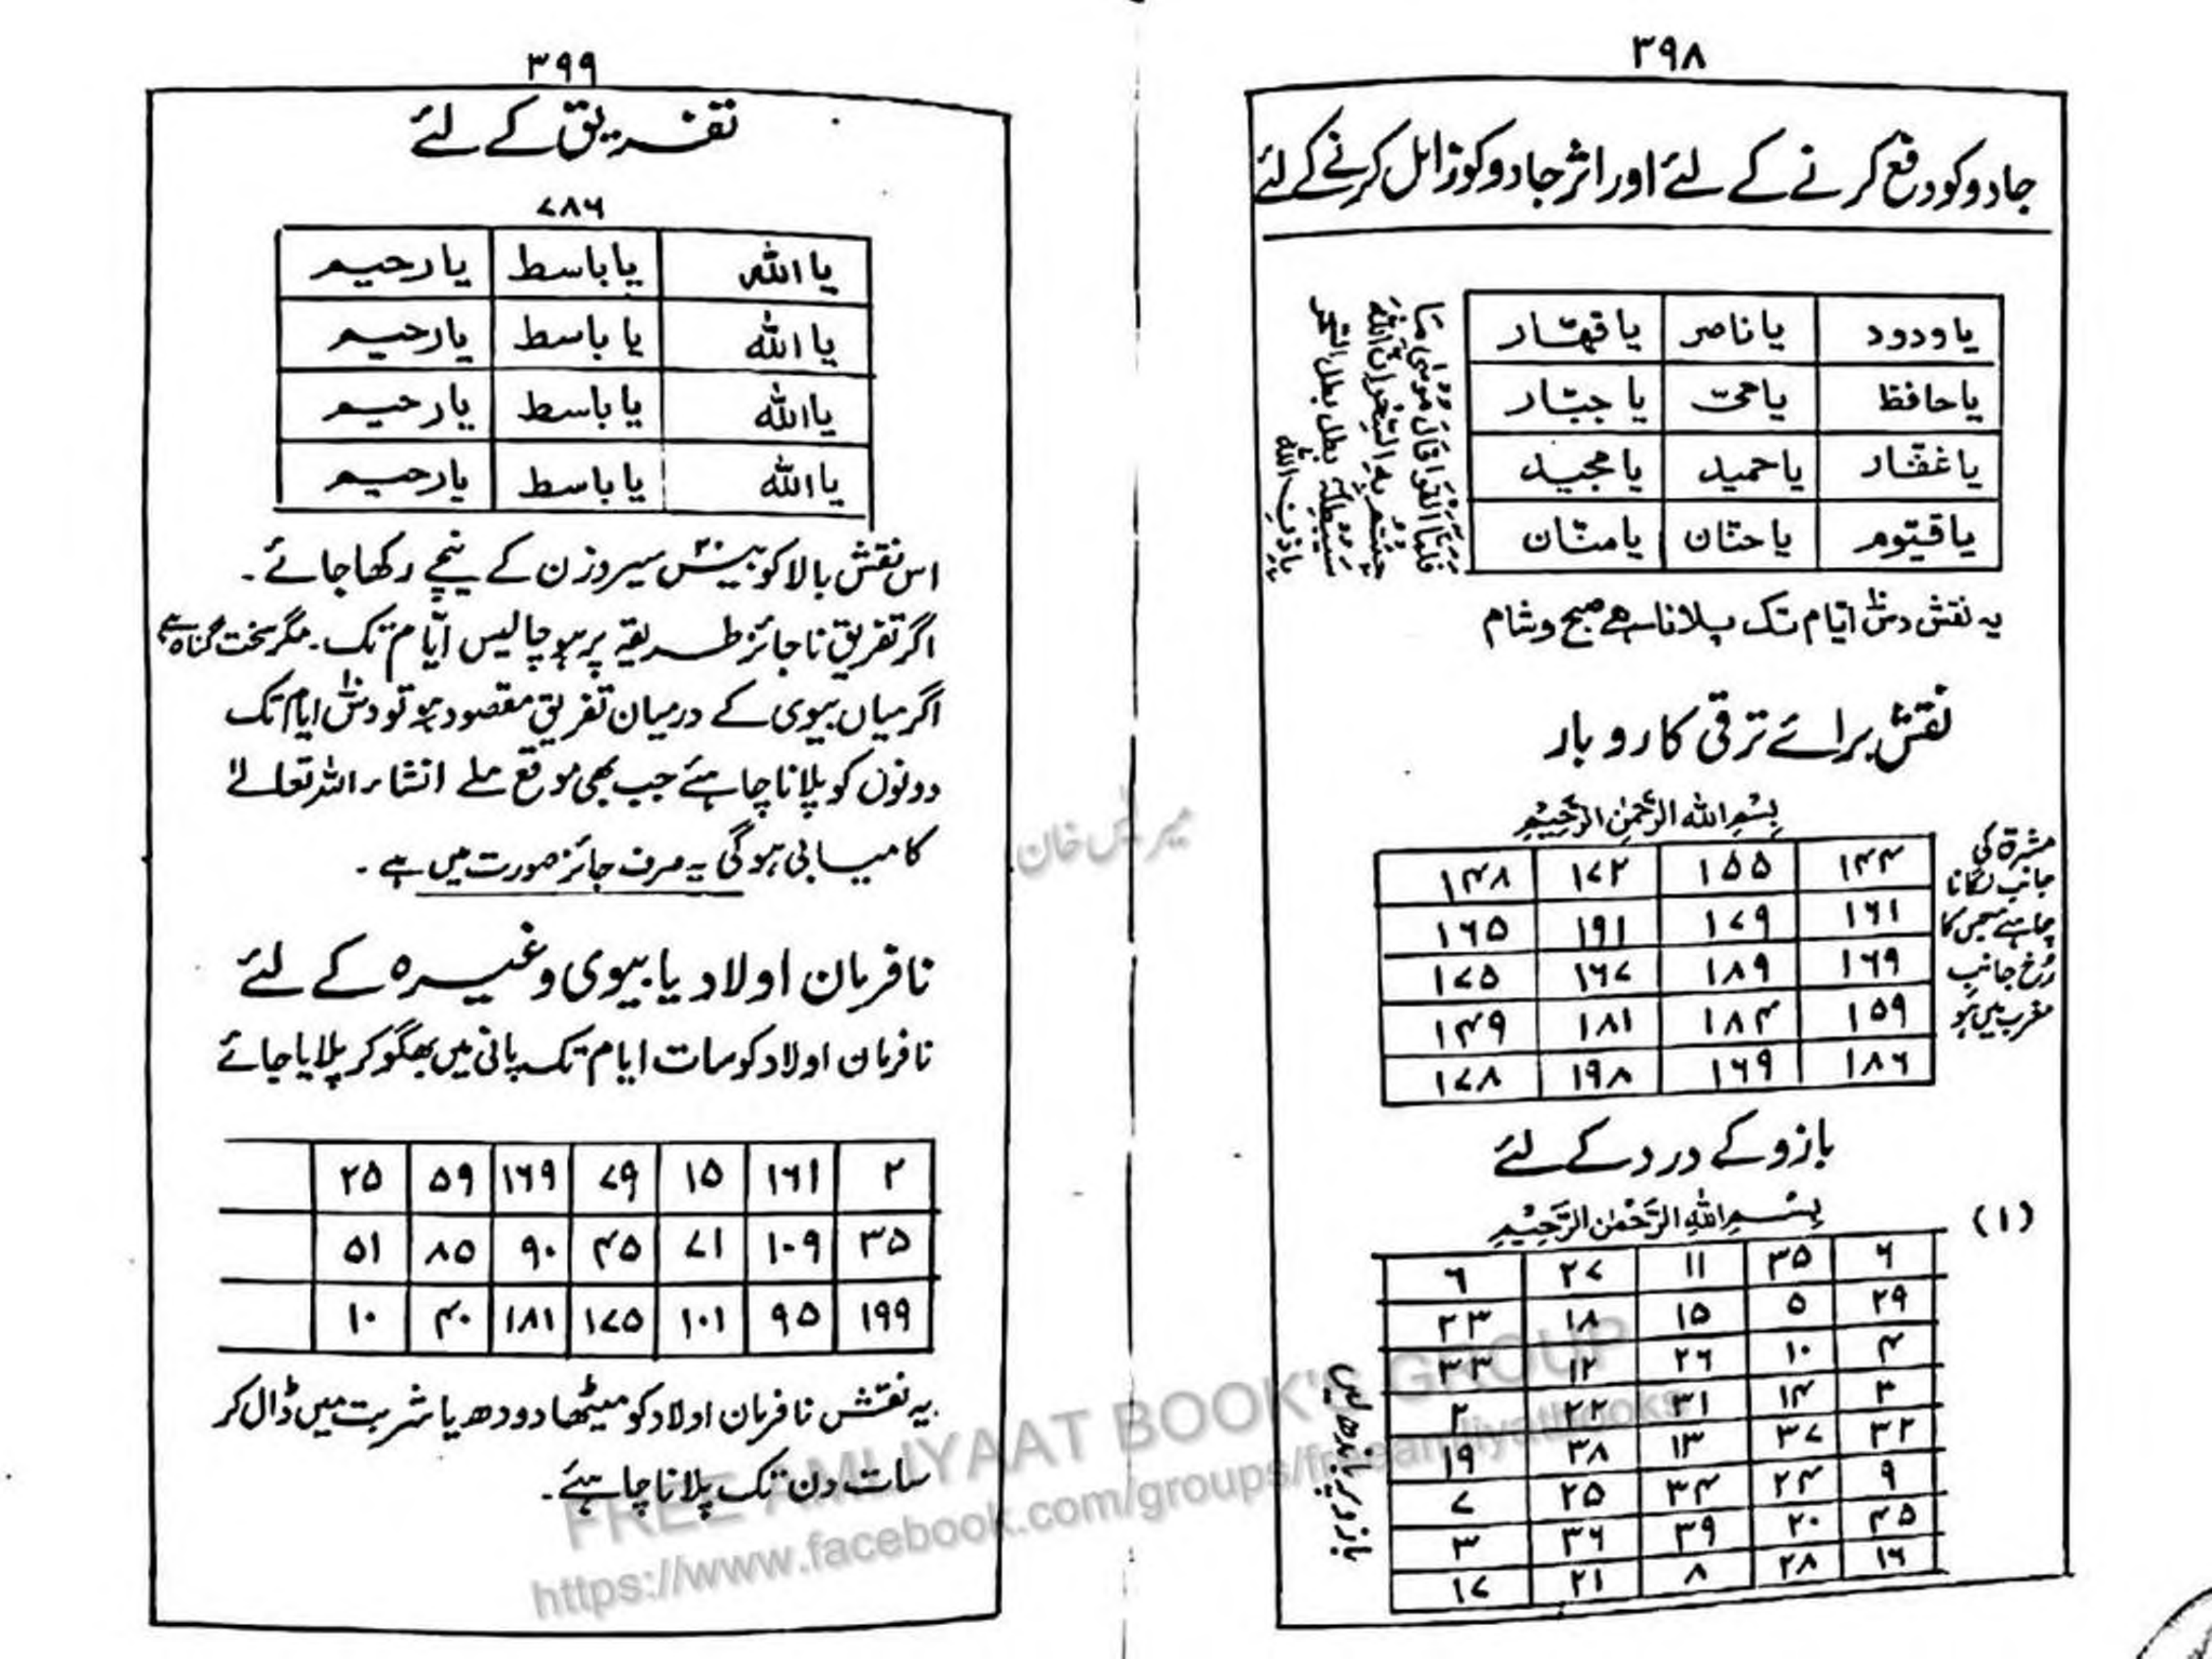 ۳۹۸
جادو کو دفع کرنے کے لئے اور اثر جادو کو زائل کرنے کے لئے
یا ودود یا ناصر یا قہّار
یا حافظ یا حیّ یا جبّار
یا غفّار یا حمید یا مجید
یا قیّوم یا حنّان یا منّان
فَلَمَّا اَلْقَوْا قَالَ مُوْسٰی مَا
جِئْتُمْ بِهِ السِّحْرُ اِنَّ اللّٰهَ
سَيُبْطِلُهٗ بطل بطل السحر
باِذنِ اللّٰه
یہ نقش دس ایّام تک پلانا ہے صبح و شام
نقش برائے ترقی کاروبار
بِسْمِ اللهِ الرَّحْمٰنِ الرَّحِيْمِ
۱۴۴ ۱۵۵ ۱۷۲ ۱۴۸
۱۶۱ ۱۷۹ ۱۹۱ ۱۶۵
۱۶۹ ۱۸۹ ۱۶۷ ۱۷۵
۱۵۹ ۱۸۴ ۱۸۱ ۱۴۹
۱۸۶ ۱۶۹ ۱۹۸ ۱۷۸
مشرق کی
جانب لگانا
چاہئے جس کا
رُخ جانب
مغرب میں ہو
بازو کے درد کے لئے
(۱)
بِسْمِ اللهِ الرَّحْمٰنِ الرَّحِيْمِ
۶ ۳۵ ۱۱ ۲۷ ۶
۲۹ ۵ ۱۵ ۱۸ ۲۳
۴ ۱۰ ۲۶ ۱۲ ۳۳
۳ ۱۴ ۳۱ ۲۲ ۲
۳۲ ۳۷ ۱۳ ۳۸ ۱۹
۹ ۲۴ ۳۴ ۲۵ ۷
۴۵ ۲۰ ۳۹ ۳۶ ۳
۱۶ ۲۸ ۸ ۲۱ ۱۷
بازو پر باندھ لیں
۳۹۹
تفریق کے لئے
۷۸۶
یا اللہ یا باسط یا رحیم
یا اللہ یا باسط یا رحیم
یا اللہ یا باسط یا رحیم
یا اللہ یا باسط یا رحیم
اس نقش بالا کو بیس سیر وزن کے نیچے رکھا جائے۔
اگر تفریق ناجائز طریقہ پر ہو چالیس ایّام تک۔ مگر سخت گناہ ہے
اگر میاں بیوی کے درمیان تفریق مقصود ہو تو دس ایام تک
دونوں کو پلانا چاہئے جب بھی موقع ملے انشاء اللہ تعالےٰ
کامیابی ہوگی یہ صرف جائز صورت میں ہے۔
نافرمان اولاد یا بیوی وغیرہ کے لئے
نافرمان اولاد کو سات ایام تک پانی میں بھگو کر پلایا جائے
۲ ۱۶۱ ۱۵ ۷۹ ۱۶۹ ۵۹ ۲۵
۳۵ ۱۰۹ ۷۱ ۴۵ ۹۰ ۸۵ ۵۱
۱۹۹ ۹۵ ۱۰۱ ۱۷۵ ۱۸۱ ۴۰ ۱۰
یہ نقش نافرمان اولاد کو میٹھا دودھ یا شربت میں ڈال کر
سات دن تک پلانا چاہئے۔
FREE AMLIYAAT BOOK'S GROUP
https://www.facebook.com/groups/freeamliyatbooks